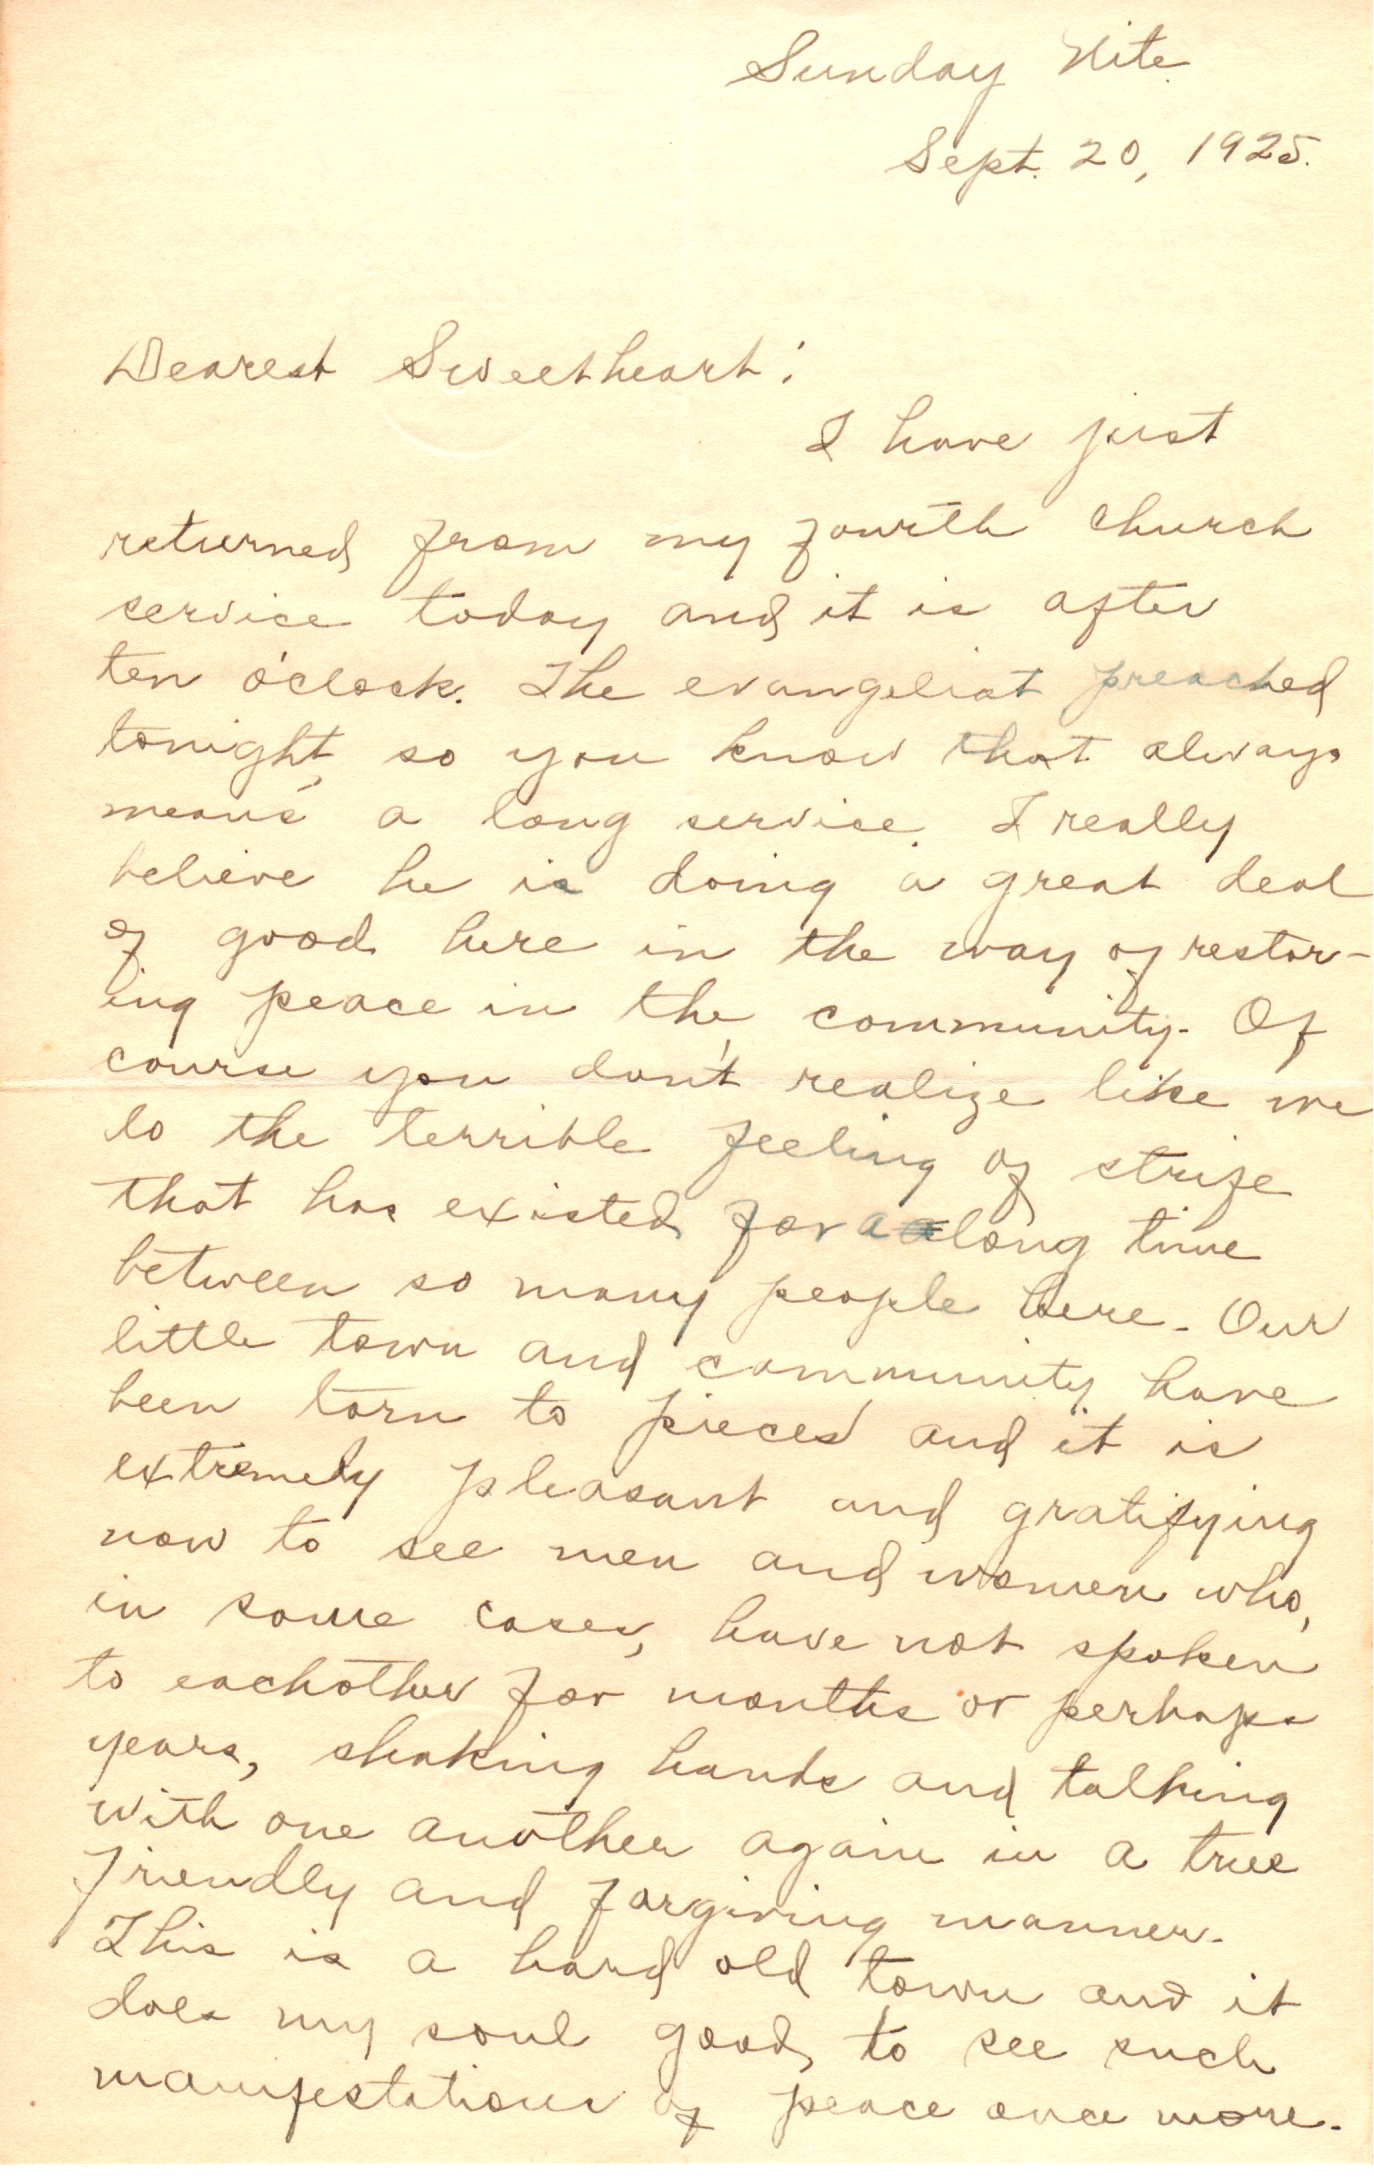 Sunday Nite.
Sept. 20, 1925.
Dearest Sweetheart:
I have just
returned from my fourth church
service today and it is after
ten o'clock. The evangelist preached
tonight, so you know that always
means a long service. I really
believe he is doing a great deal
of good here in the way of restor-
ing peace in the community. Of
course you don't realize like we
do the terrible feeling of strife
that has existed for a long time
between so many people here. Our
little town and community have
been torn to pieces and it is
extremely pleasant and gratifying
now to see men and women who,
in some cases, have not spoken
to eachother for months or perhaps
years, shaking hands and talking
with one another again in a true
friendly and forgiving manner.
This is a hard old town and it
does my soul good to see such
manifestations of peace once more.